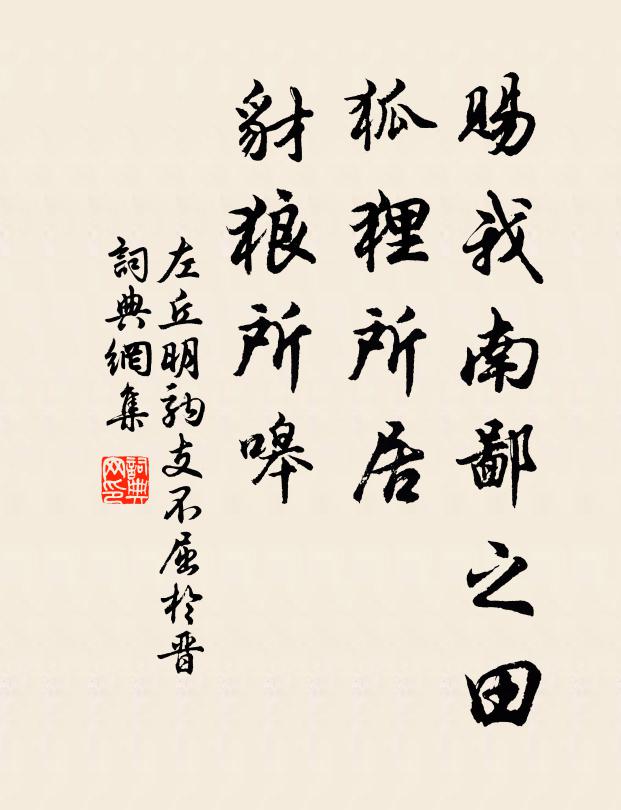 賜我南鄙之田
狐狸所居
豺狼所嗥
左丘明駒支不屈於晋
詞典網集
詞典网印